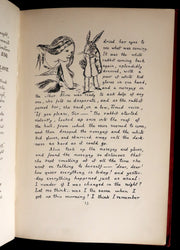 dried her eyes to
see what was coming.
It was the white
rabbit coming back
again, splendidly
dressed, with a
pair of white kid
gloves in one hand,
and a nosegay in
the other. Alice was ready to ask help of any
one, she felt so desperate, and as the rabbit
passed her, she said, in a low, timid voice,
"If you please, Sir—" the rabbit started
violently, looked up once into the roof of the
hall, from which the voice seemed to come,
and then dropped the nosegay and the white kid
gloves, and skurried away into the dark-
ness as hard as it could go.
Alice took up the nosegay and gloves,
and found the nosegay so delicious that
she kept smelling at it all the time she
went on talking to herself— "dear, dear!
how queer everything is today! and yester-
day everything happened just as usual:
I wonder if I was changed in the night?
Let me think: was I the same when I
got up this morning? I think I remember